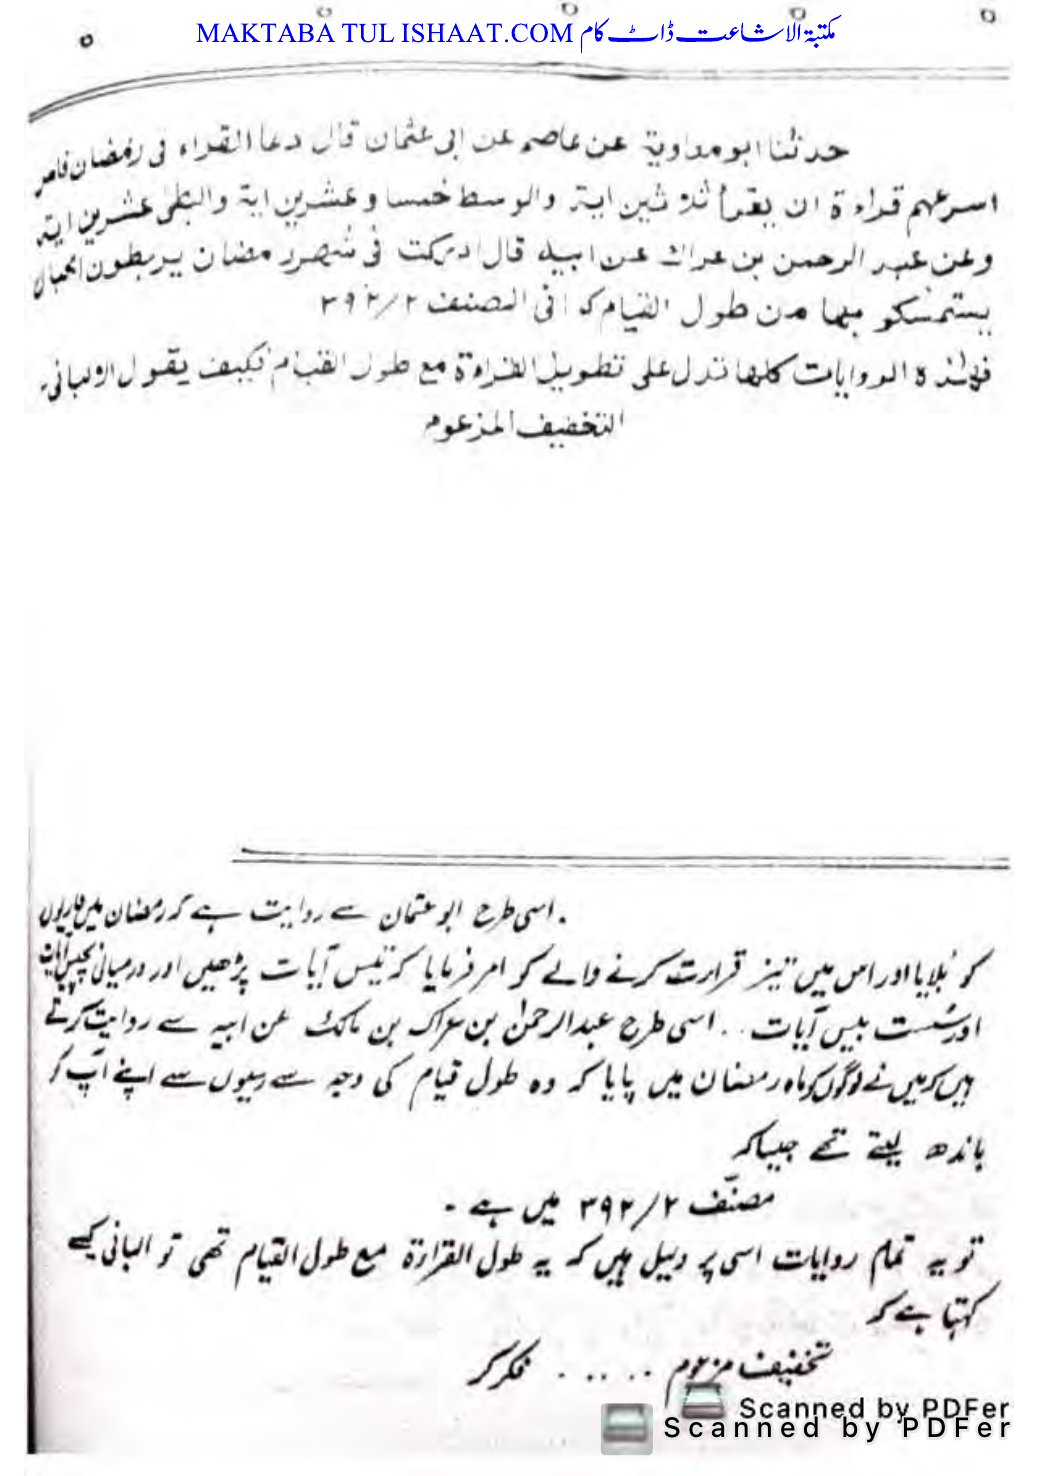 MAKTABA TUL ISHAAT.COM مکتبۃ الاشاعت ڈاٹ کام
حدثنا ابو معاوية عن عاصم عن ابى عثمان قال دعا القراء فى رمضان فامر
اسرعهم قراءة ان يقرأ ثلاثين اية والوسط خمسا وعشرين اية والبطى عشرين اية
وعن عبد الرحمن بن عراك عن ابيه قال ادركت فى شهر رمضان يربطون الحبال
يستمسكو بها من طول القيام كذا فى المصنف ۳۹۲/۲
فهذه الروايات كلها تدل على تطويل القراءة مع طول القيام فكيف يقول الالبانى
التخفيف المزعوم
اسی طرح ابو عثمان سے روایت ہے کہ رمضان میں قاریوں
کو بُلایا اور اس میں تیز قراءت کرنے والے کو امر فرمایا کہ تیس آیات پڑھیں اور درمیانی پچیس آیات
اور سُست بیس آیات ۔۔ اسی طرح عبدالرحمٰن بن عراک بن مالک عن ابیہ سے روایت کرتے
ہیں کہ میں نے لوگوں کو ماہ رمضان میں پایا کہ وہ طول قیام کی وجہ سے رسیوں سے اپنے آپ کو
باندھ لیتے تھے جیسا کہ
مصنّف ۳۹۲/۲ میں ہے ۔
تو یہ تمام روایات اسی پر دلیل ہیں کہ یہ طول القراءۃ مع طول القیام تھی تو البانی کیسے
کہتا ہے کہ
تخفیف مزعوم ۔۔ ۔۔ ۔ فکر کر
Scanned by PDFer
Scanned by PDFer